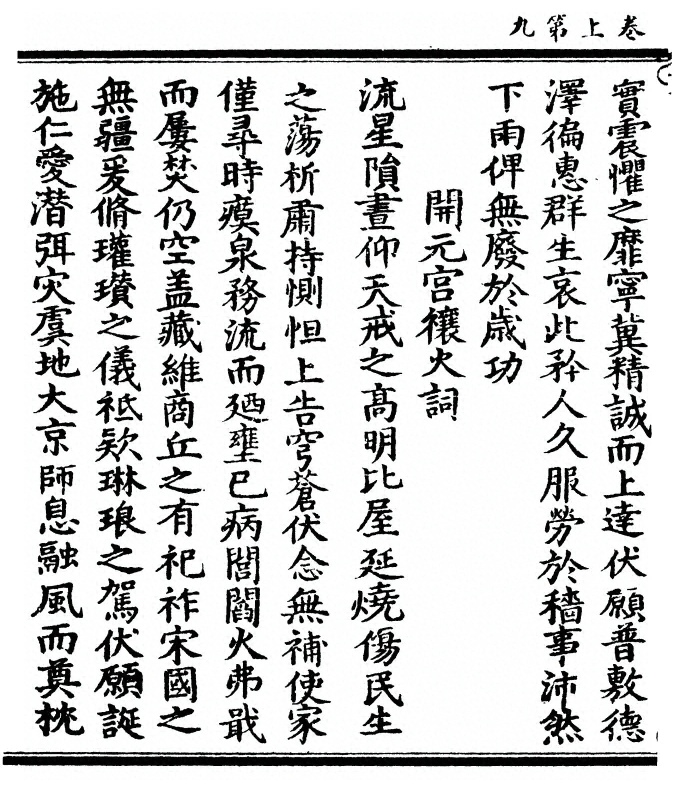 卷上第九
實震懼之靡寧冀精誠而上達伏願普敷德
澤徧惠群生哀此矜人久服勞於穡事沛然
下雨俾無廢於歲功
開元宮禳火詞
流星隕晝仰天戒之高明比屋延燒傷民生
之蕩析肅持惻怛上告穹蒼伏念無補使家
僅尋時瘼泉務流而廼壅已病閭閻火弗戢
而屢焚仍空盖藏維商丘之有祀祚宋國之
無疆爰脩瓘瓚之儀祗欵琳琅之駕伏願誕
施仁愛潜弭灾虞地大京師息融風而奠枕